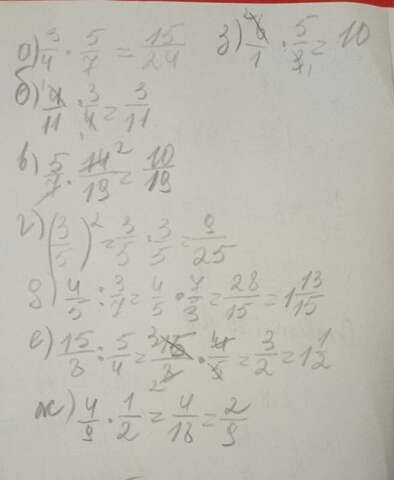 а) 3/4 · 5/7 = 15/24
з) 6/1 · 5/3 = 10
б) 4/11 · 3/4 = 3/11
в) 5/7 · 14/19 = 10/19
г) (3/5)² = 3/5 · 3/5 = 9/25
д) 4/5 : 3/7 = 4/5 · 7/3 = 28/15 = 1 13/15
е) 15/8 : 5/4 = 15/8 · 4/5 = 3/2 = 1 1/2
ж) 4/9 · 1/2 = 4/18 = 2/9